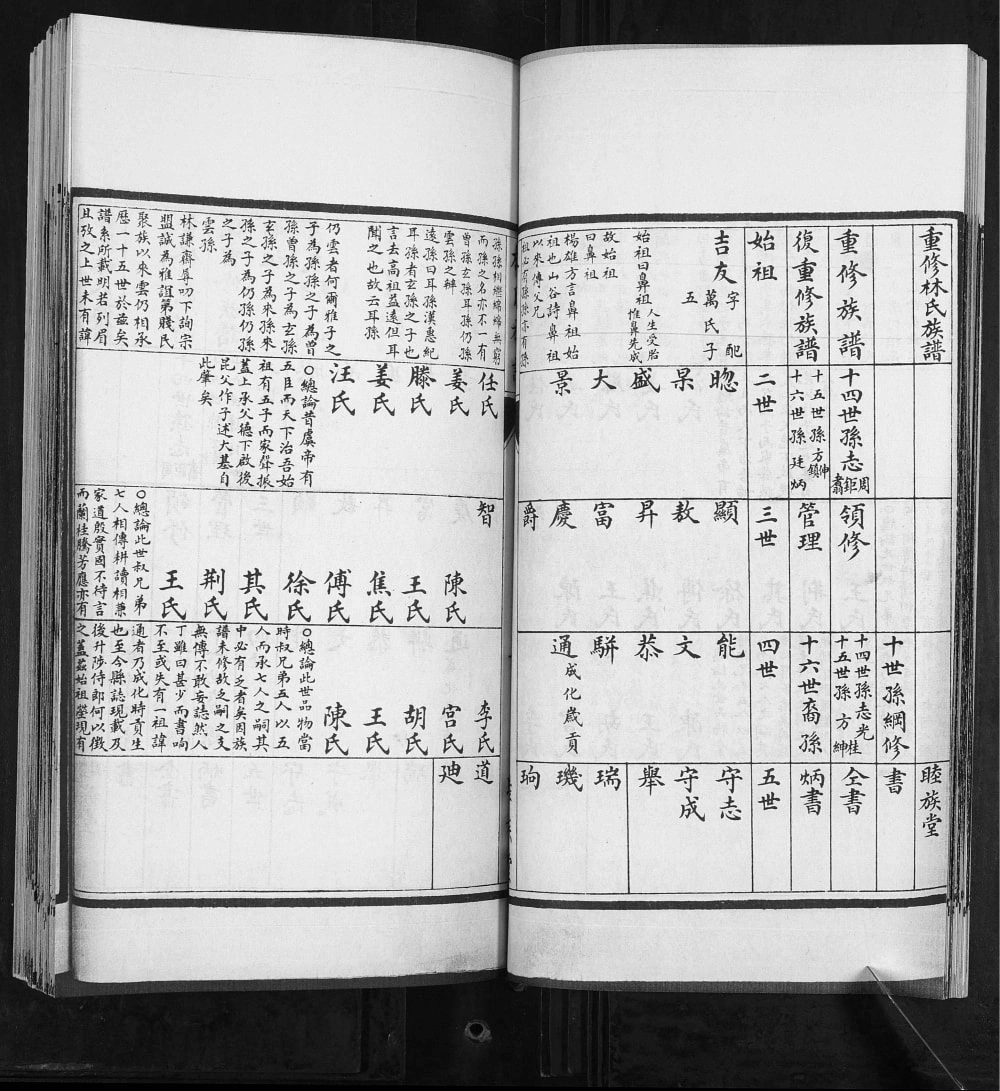 重修林氏族譜
睦族堂
十世孫綱修
書
重修族譜
十四世孫志周鉅翥
領修
十四世孫志光
十五世孫方紳桂
仝書
復重修族譜
十五世孫方鎮紳
十六世孫廷炳
管理
十六世裔孫
炳書
始祖
二世
三世
四世
五世
吉友
字
萬氏子
配
五
始祖曰鼻祖人生受胎惟鼻先成
故始祖曰鼻祖
楊雄方言鼻祖始祖也山谷詩鼻祖
以來傳父兄
祖必有孫孫亦有孫
惚
果
盛
大
景
顯
敖
昇
富
慶
爵
能
文
恭
駢
通成化歲貢
守志
守成
舉
瑞
璣
珦
孫孫相繼綿綿無窮
而孫之名亦不一有
曾孫玄孫耳孫仍孫
雲孫之辨
遠孫曰耳孫漢惠紀
耳孫者玄孫之子也
言去高祖益遠但耳
聞之也故云耳孫
仍雲者何爾雅子之
子為孫孫之子為曾
孫曾孫之子為玄孫
玄孫之子為來孫來
孫之子為仍孫仍孫
之子為
雲孫
林謙齋尊叨下詢宗
盟誠為雅誼第賤氏
聚族以來雲仍相承
歷一十五世於茲矣
譜系所載明若列眉
且攷之上世未有諱
任氏
姜氏
滕氏
姜氏
汪氏
○總論昔虞帝有
五臣而天下治吾始
祖有五子而家聲振
蓋上承父德下啟後
昆父作子述大基自
此肇矣
智
陳氏
王氏
焦氏
傅氏
徐氏
其氏
荆氏
王氏
○總論此世叔兄弟
七人相傳耕讀相兼
家道殷實固不待言
而蘭桂騰芳應亦有
李氏
宮氏
胡氏
王氏
陳氏
○總論此世品物當
時叔兄弟五人以五
人而承七人之嗣其
中必有乏者矣因族
譜未修故乏嗣之支
無傳不敢妄誌然人
丁雖曰甚少而書响
不至或失有一祖諱
通者乃成化時貢生
也至今縣誌現載及
後升陟侍郎何以徵
之蓋茲始祖塋現有
道
廸